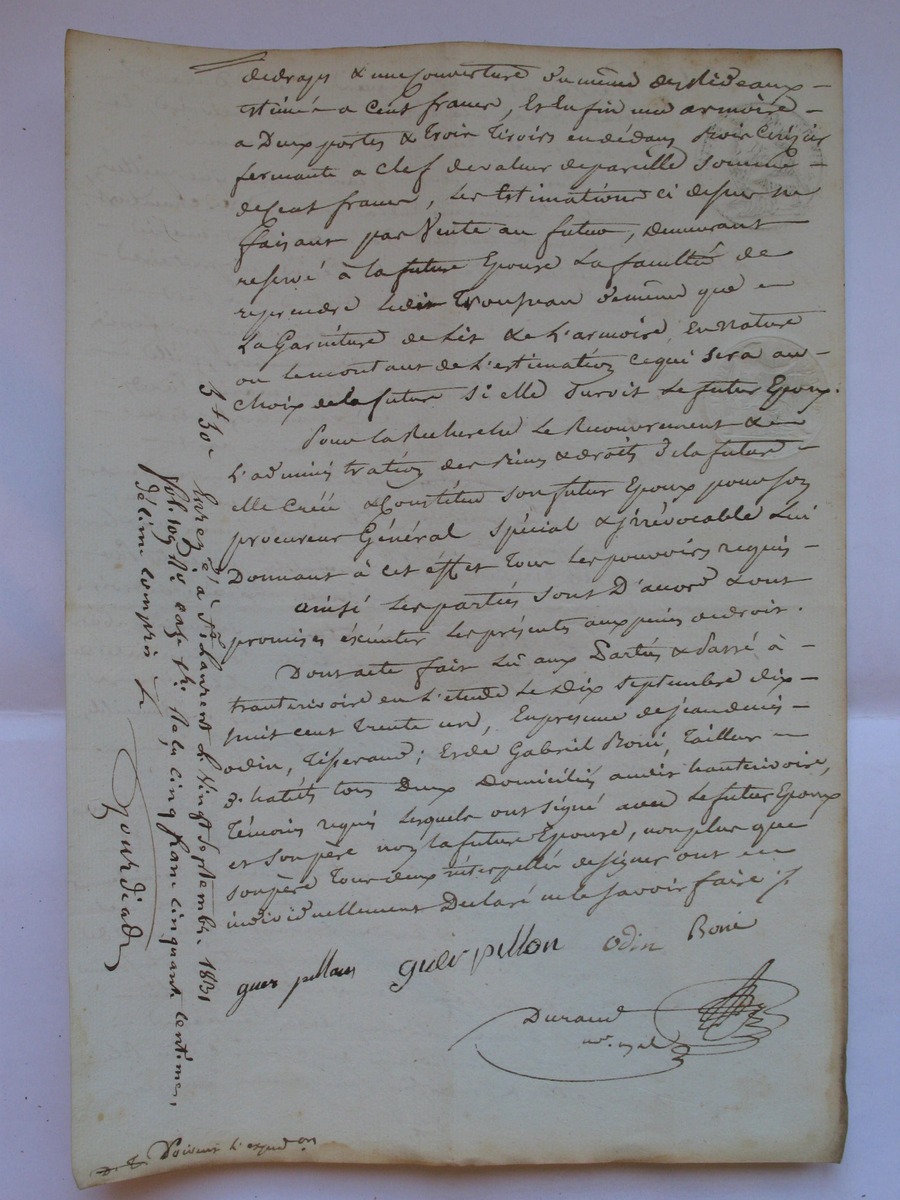 de draps & une Couverture d'un même des Rideaux
estimés a Cent francs, Et Enfin une armoire
a Deux portes & trois tiroirs en dédans Bois Cerisier
fermante a Clef de valeur de pareille somme
de Cent francs, Les Estimations ci dessus ne
faisant pas Vente au futur, demeurant
reservé à la future Epouse La faculté de
reprendre Ledit Trousseau de même que
La Garniture de Lit & de L'armoire En Nature
ou le montant de L'estimation ce qui sera au
Choix de la future Si elle Survit Le futur Epoux.
Pour la Recherche Le Recouvrement &
L'administration des Biens & droits de la future
elle Créé & Constitue son futur Epoux pour son
procureur Général Spécial & irrévocable Lui
Donnant à cet effet Tous Les pouvoirs requis
ainsi Les parties sont D'accord & ont
promises éxécuter Les présentes aux peines de droit.
Dont acte fait Lu aux Parties & Passé à
hauterivoire en L'étude Le Dix Septembre dix
huit cent trente un, En présence de Jean denis
odin, Tisserand; Et de Gabriel Boné, Tailleur
d'habits tous Deux Domiciliés audit hauterivoire,
Témoins requis Lesquels ont signé avec Le futur Epoux
et son père non la future Epouse, non plus que
son père tous deux interpellés de signer ont
individuellement Déclaré ne le savoir faire ./.
guerpillon guerpillon odin Boné
Durand
Enreg.é à St Laurent Le Vingt Septembre 1831
fol. 109 R.o case 4 &c. Reçu cinq francs cinquante centimes,
décime compris
Gourdiad